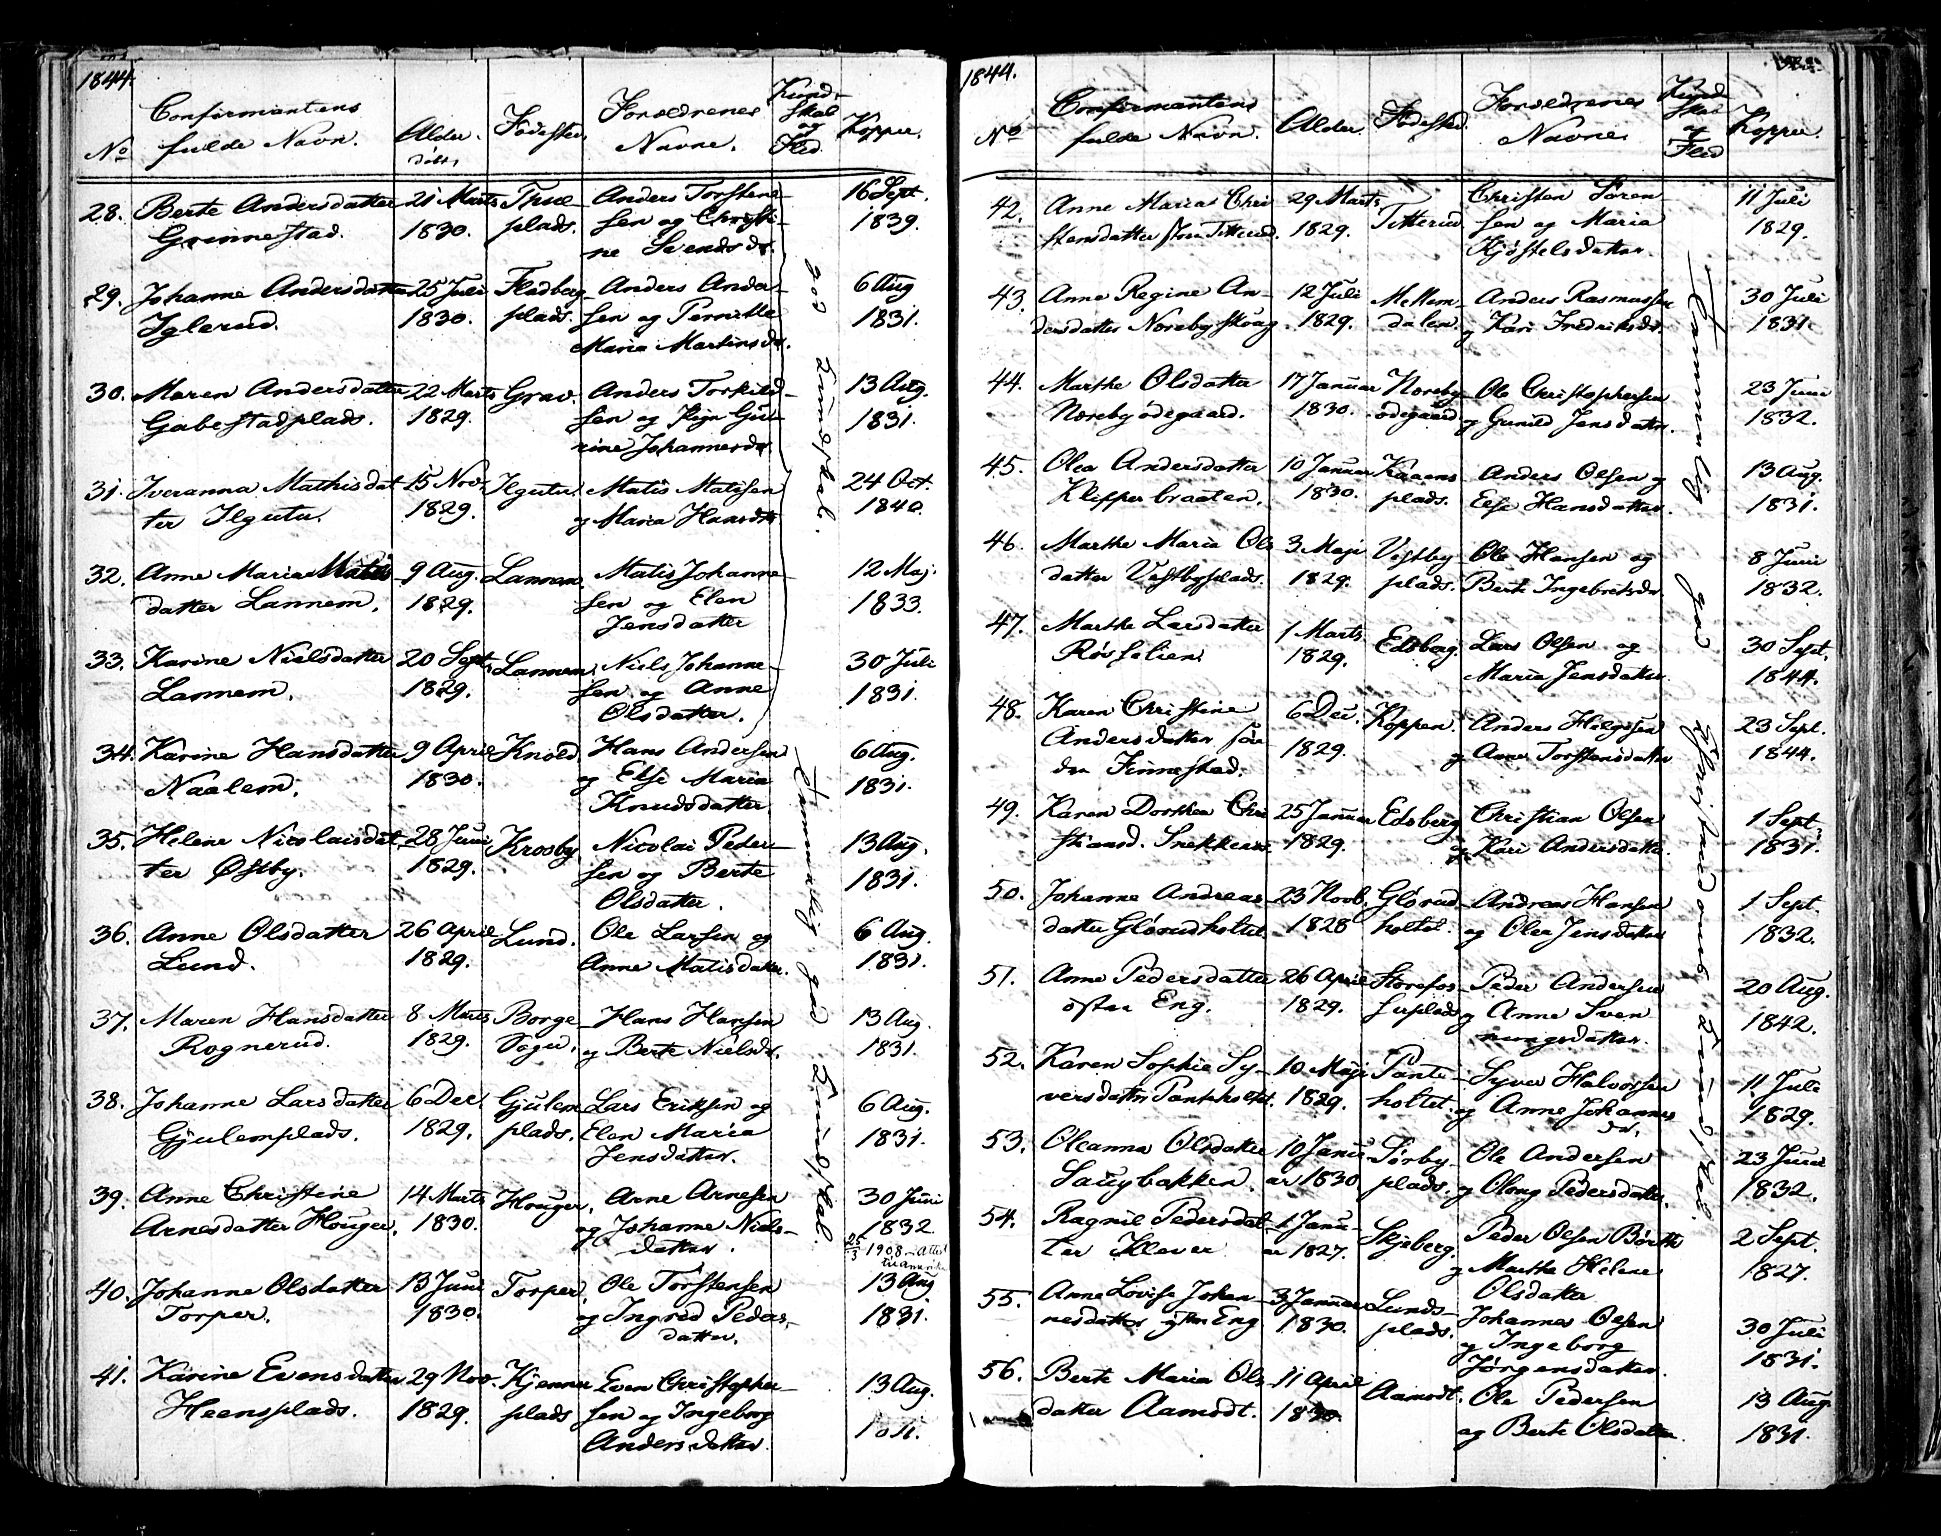 1844.
No
Confirmantens fulde Navn.
Alder. døbt.
Fødested.
Forældrenes Navne.
Kund-skab og Flid.
Kopper.
28. Berte Andersdatter 21 Marts Thue- Anders Torstens- 16 Sept.
Grinnestad. 1830. plads. sen og Christi- 1839.
ne Svendsdr.
29. Johanne Andersdatter 25 Juli Fladberg- Anders Ander- 6 Aug
Iglerud. 1830. plads. sen og Pernille 1831.
Maria Martinsdr.
30. Maren Andersdatter 22 Marts Grav. Anders Torkild- 13 Aug.
Gabestadplads. 1829. sen og Gu- 1831.
rine Johannesdr.
31. Iveranna Mathisdat- 15 Nov. Ilgutu. Matis Matisen 24 Oct.
ter Ilgutu. 1829. og Maria Hansdtr 1840.
32. Anne Maria Matis 9 Aug. Lannem Matis Johanne- 12 Maj.
datter Lannem. 1829. sen og Elen 1833.
Jensdatter
33. Karine Nielsdatter 20 Sept. Lannem. Niels Johanne- 30 Juli
Lannem. 1829. sen og Anne 1831.
Olsdatter.
god Kundskab.
34. Karine Hansdatter 9 April Knold. Hans Andersen 6 Aug.
Naalem. 1830. og Else Maria 1831.
Knudsdatter
35. Helene Nicolaisdat- 28 Juni Krosby. Nicolai Peder- 13 Aug.
ter Østby. 1829. sen og Berte 1831.
Olsdatter.
36. Anne Olsdatter 26 April Lund. Ole Larsen og 6 Aug.
Lund. 1829. Anne Matisdatter. 1831.
37. Maren Hansdatter 8 Marts Borge Hans Hansen 13 Aug.
Rognerud. 1829. Sogn. og Berte Nielsdr. 1831.
38. Johanne Larsdatter 6 Dec. Gjulem Lars Eriksen og 6 Aug.
Gjulemplads. 1829. plads. Elen Maria 1831.
Jensdatter.
39. Anne Christine 14 Marts Houger. Arne Arnesen 30 Juni
Arnesdatter Houger. 1830. og Johanne Niels- 1832
datter. 25/3 1908 Attest
til Amerika
40. Johanne Olsdatter 13 Juni Torper. Ole Torstensen 13 Aug
Torper. 1830. og Ingred Peders- 1831.
datter.
41. Karine Evensdatter 29 Nov. Kjenner Even Christopher- 13 Aug.
Heensplads. 1829. plads sen og Ingeborg
Andersdatter.
temmelig god Kundskab.
1844.
No
Confirmantens fulde Navn.
Alder.
Fødested.
Forældrenes Navne.
Kund-skab og Flid
Kopper.
42. Anne Marias Chri- 29 Marts Titterud Christen Søren- 11 Juli
stensdatter store Titterud. 1829. sen og Maria 1829.
Kjøstelsdatter.
43. Anne Regine An- 12 Juli Mellem- Anders Rasmussen 30 Juli
dersdatter Norebyskoug. 1829. dalen. og Kari Fredriksdr. 1831.
44. Marthe Olsdatter 17 Januar Noreby- Ole Christophersen 23 Juni
Norebyødegaard. 1830. ødegaard og Gunild Jensdatter. 1832.
45. Olea Andersdatter 10 Januar Kaaens Anders Olsen og 13 Aug.
Klipperbraaten. 1830. plads. Else Hansdatter. 1831.
46. Marthe Maria Ols 3 Maji Vestby- Ole Hansen og 8 Juni
datter Vestbyplads. 1829. plads. Berte Ingebretsdr 1832.
47. Marthe Larsdatter 1 Marts Edsberg. Lars Olsen og 30 Sept.
Røsholien. 1829. Maria Jensdatter. 1844.
48. Karen Christine 6 Dec. Koppen. Anders Helgesen 23 Sept.
Andersdatter søn- 1829. og Anne Torstensdatter 1844.
dre Finnestad.
49. Karen Dorthea Chri 25 Januar Edsberg Christian Olsen 1 Sept.
stiansd. Snekkenes. 1829. og Kari Andersdatter. 1831.
50. Johanne Andreas- 23 Novb. Glørud- Andreas Hansen 1 Sept.
datter Glørudholtet. 1828 holtet. og Olea Jensdatter 1832.
51. Anne Pedersdatter 26 April Storefos- Peder Andersen 20 Aug.
østre Eng. 1829. plads og Anne Sven 1842.
ningsdatter.
52. Karen Sophie Sy- 10 Maji Pante- Syver Halvorsen 11 Juli
versdatter Panteholtet. 1829. holtet. og Anne Johannes 1829.
dr.
53. Oleanna Olsdatter 10 Janu- Sørby- Ole Andersen 23 Juni
Saugbakken. ar 1830 plads. og Olong Pedersdatter. 1832.
54. Ragnil Pedersdat- 1 Janu- Skjeberg. Peder Olsen Børthe 2 Sept.
ter Klever ar 1827. og Marthe Helene 1827.
Olsdatter
55. Anne Lovise Johan- 3 Januar Lunds- Johannes Olsen 30 Juli
nesdatter østre Eng 1830. plads. og Ingeborg 1831.
Jørgensdatter.
56. Berte Maria Ols 11 April Aamodt. Ole Pedersen 13 Aug.
datter Aamodt. 1830. og Berte Olsdatter. 1831.
Temmelig god Christendoms Kundskab.